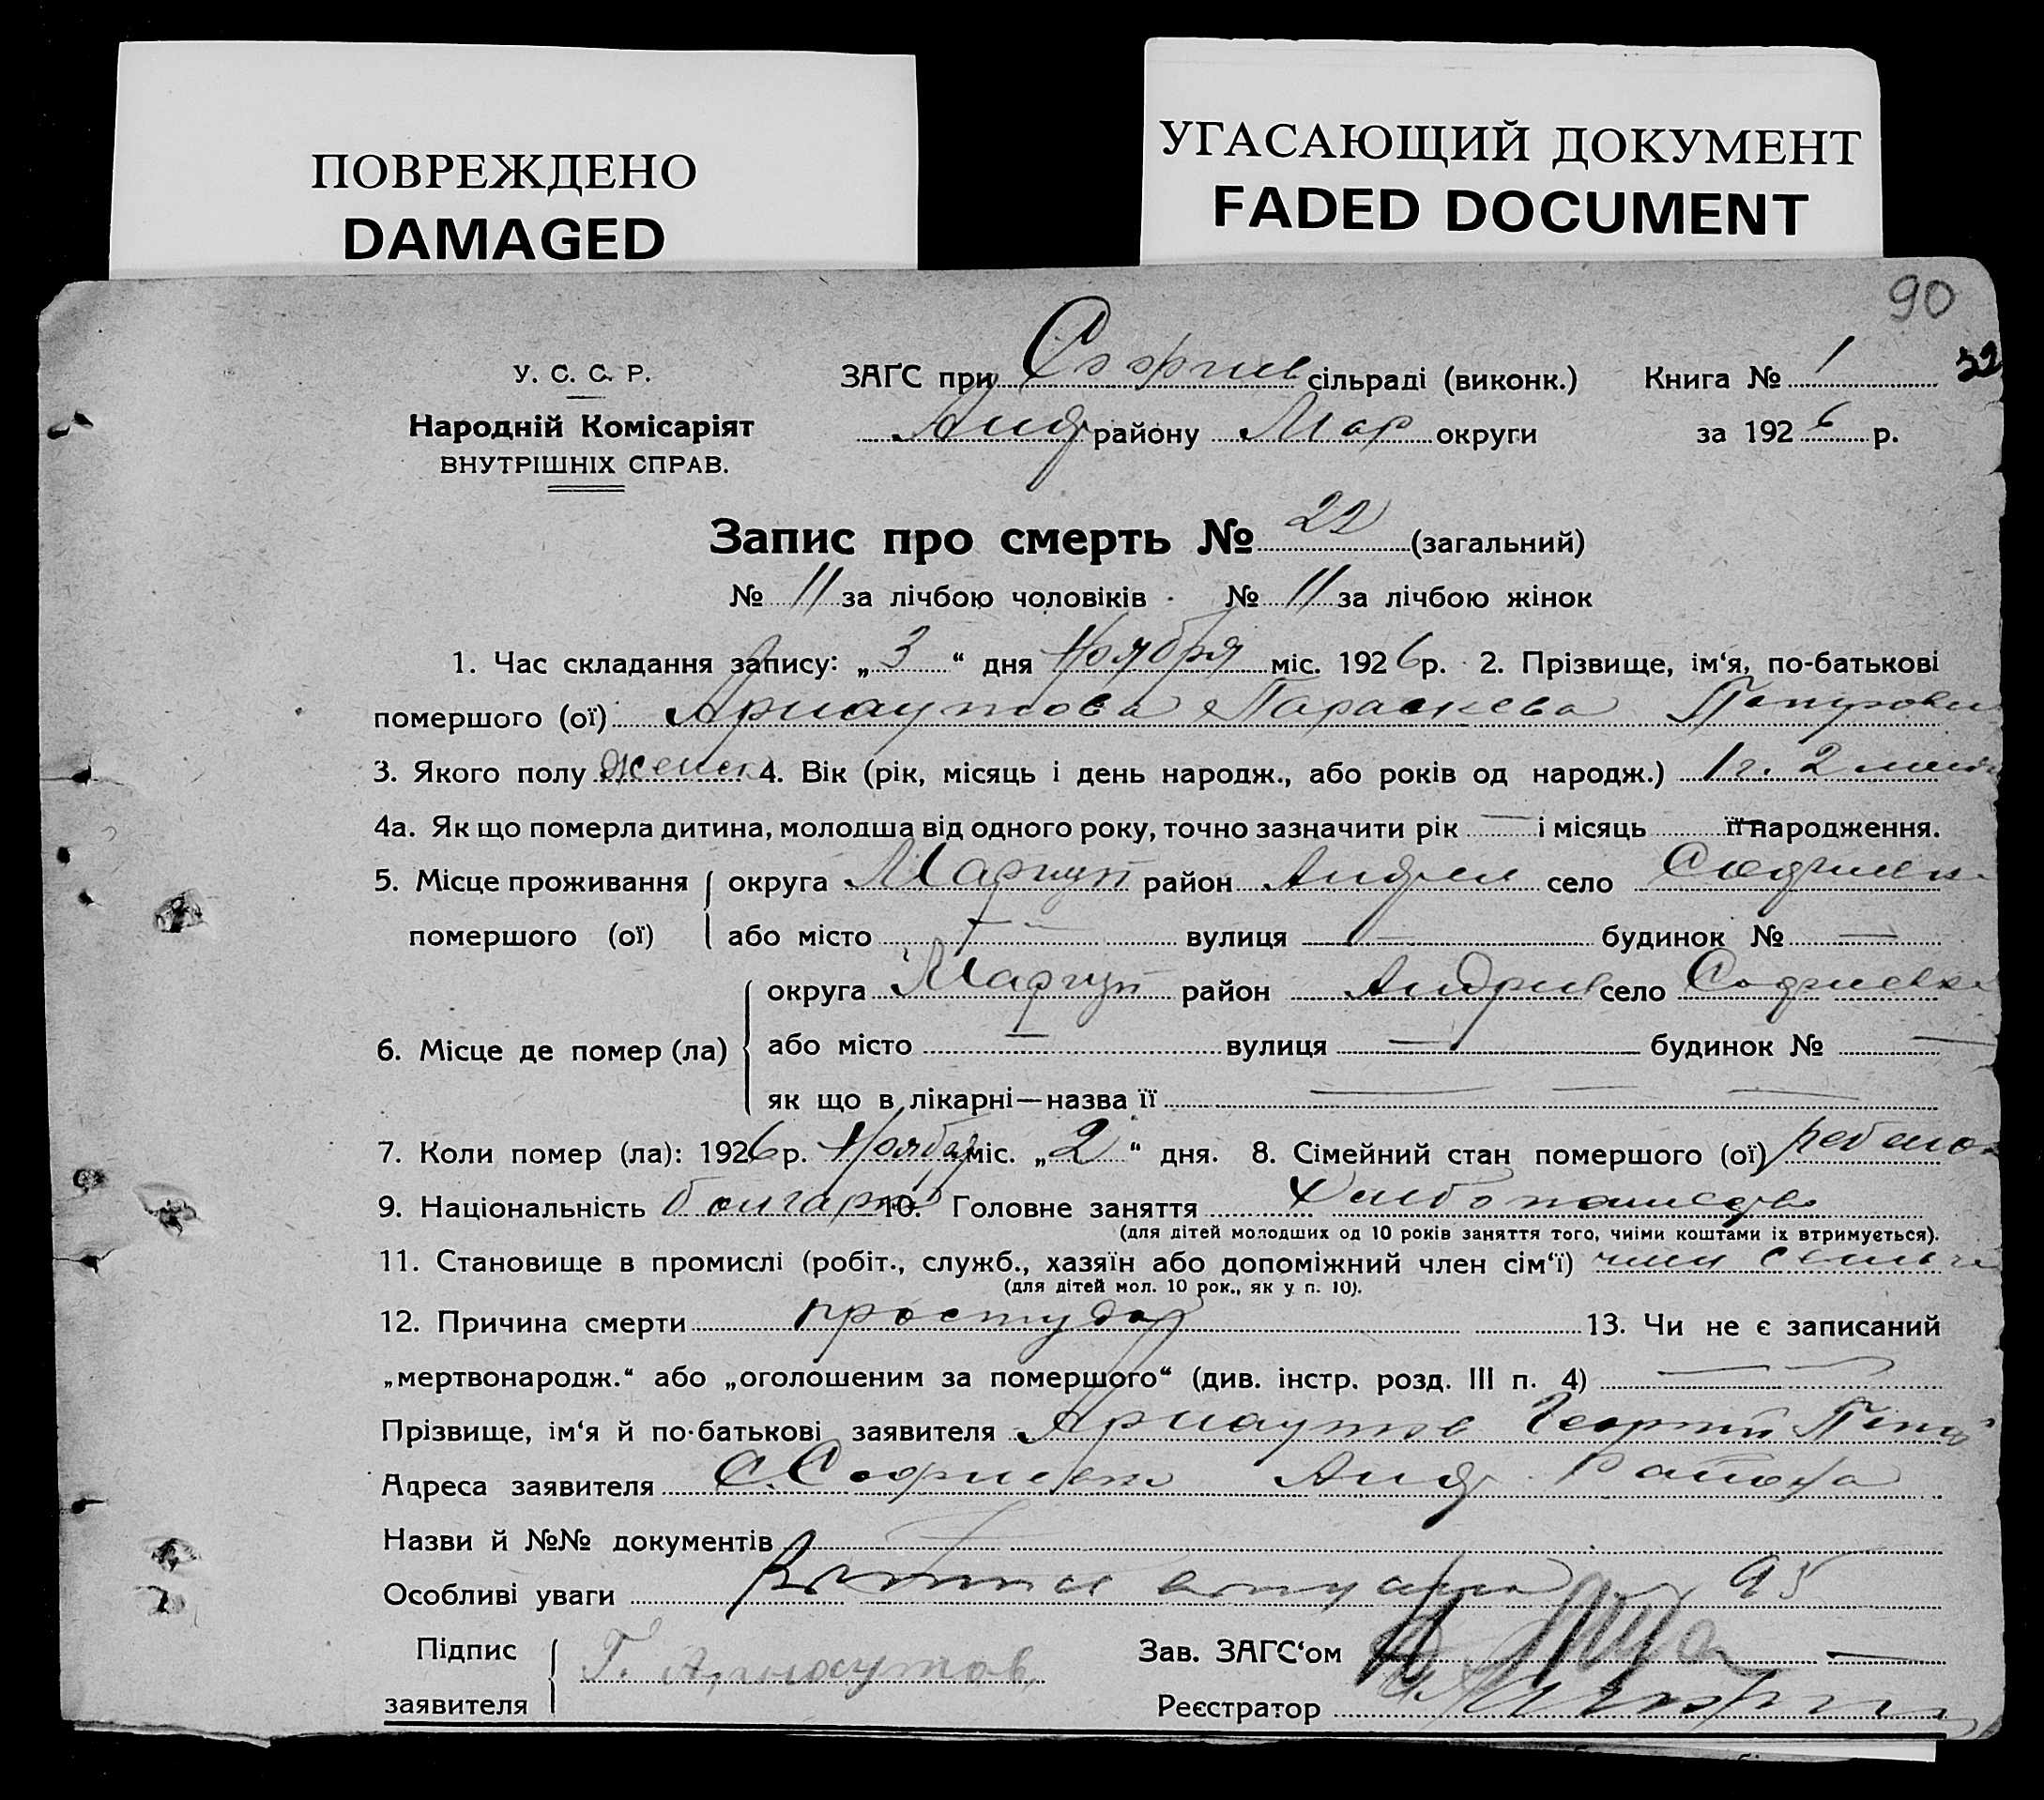 ПОВРЕЖДЕНО
DAMAGED
УГАСАЮЩИЙ ДОКУМЕНТ
FADED DOCUMENT
90
У. С. С. Р.
Народній Комісаріят
ВНУТРІШНІХ СПРАВ.
ЗАГС при Софиев сільраді (виконк.) Книга № 1 32
Андр району Мар округи за 1926 р.
Запис про смерть № 22 (загальний)
№ 11 за лічбою чоловіків № 11 за лічбою жінок
1. Час складання запису: „3“ дня Ноября міс. 1926 р. 2. Прізвище, ім‘я, по-батькові
помершого (ої) Арнаутова Параскева Петровн
3. Якого полу женск 4. Вік (рік, місяць і день народж., або років од народж.) 1 г. 2 мес
4а. Як що померла дитина, молодша від одного року, точно зазначити рік — і місяць — її народження.
5. Місце проживання округа Мариуп район Андрее село Софиевка
помершого (ої) або місто — вулиця — будинок № —
округа Мариуп район Андреев село Софиевка
6. Місце де помер (ла) або місто — вулиця — будинок № —
як що в лікарні—назва її — — —
7. Коли помер (ла): 1926 р. Ноября міс. „2“ дня. 8. Сімейний стан помершого (ої) ребенок
9. Національність болгарк 10. Головне заняття Хлебопашество
(для дітей молодших од 10 років заняття того, чиїми коштами їх втримується).
11. Становище в промислі (робіт., служб., хазяїн або допоміжний член сім‘ї) член семьи
(для дітей мол. 10 рок., як у п. 10).
12. Причина смерти простуда 13. Чи не є записаний
„мертвонародж.“ або „оголошеним за помершого“ (див. інстр. розд. III п. 4) — —
Прізвище, ім‘я й по-батькові заявителя Арнаутов Георгий Петр
Адреса заявителя С. Софиевка Анд. Района
Назви й №№ документів
Особливі уваги
Підпис
заявителя Г. Арнаутов
Зав. ЗАГС‘ом
Реєстратор